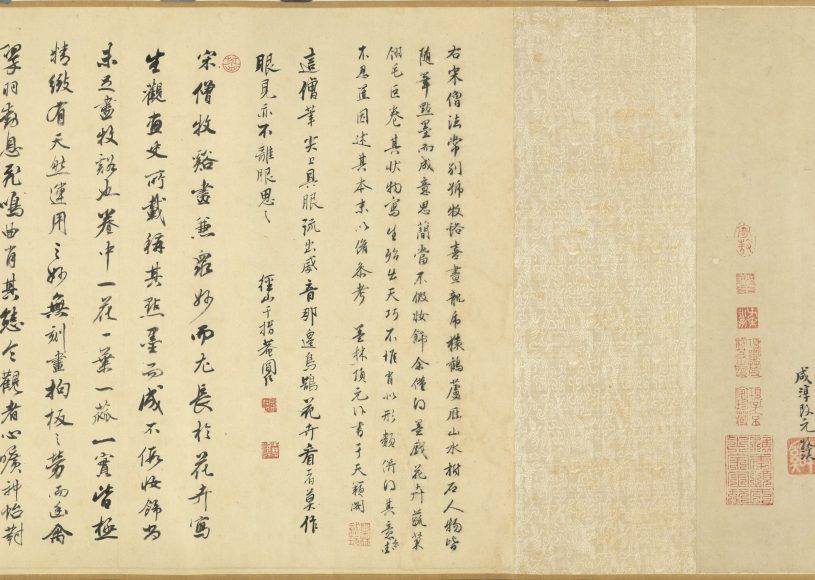 咸淳改元牧溪
右宋僧法常別號牧谿喜畫龍虎猿鶴蘆雁山水樹石人物皆
隨筆點墨而成意思簡當不假妝飾余僅得墨戲花卉蔬菓
翎毛巨卷其狀物寫生殆出天巧不惟肖似形類併得其意
不忍置因述其本末以備參考 墨林項元汴書于天籟閣
這僧筆尖上具眼流出威音那邊鳥鵲花卉看者莫作
眼見亦不離眼思之 徑山千指菴圓
宋僧牧谿畫兼眾妙而尤長於花卉寫
生觀畫史所載稱其點墨而成不假妝飾尚
未足盡牧谿也卷中一花一葉一蓏一實皆極
精緻有天然運用之妙無刻畫拘板之勞而禽
翠羽息飛鳴曲肖其態令觀者心曠神怡對